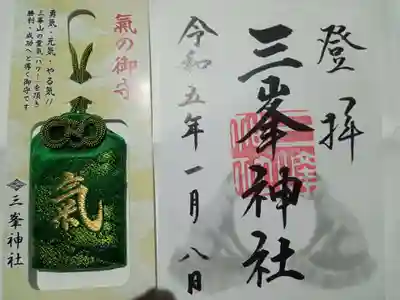 登拝
三峯神社
令和五年一月八日
氣の御守
勇氣・元氣・やる氣!!
三峯山の霊氣(パワー)を頂き
勝利・成功へと導く御守です
氣
三峯神社